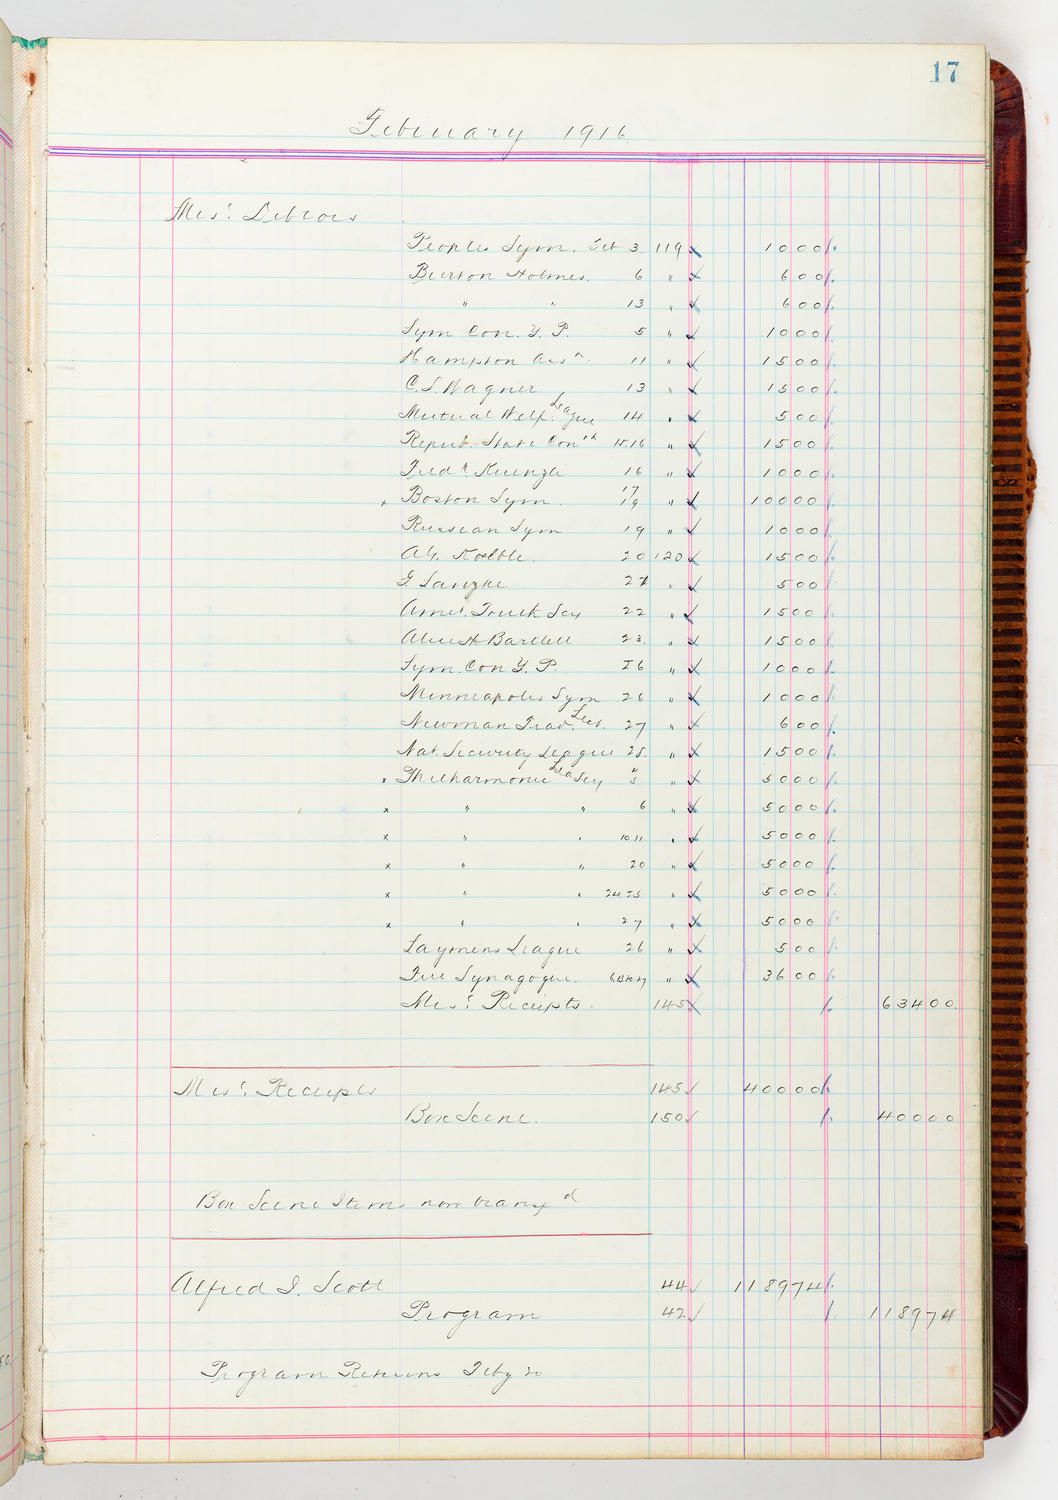 17
February 1916
Misc. Debtors
Peoples Sym. Feb 3. 119 1000
Burton Holmes. 6 " 600
" " 13 " 600
Sym Con. Y. P. 5 " 1000
Hampton Assn. 11 " 1500
C. S. Wagner 13 " 1500
Mutual Welf. League 14 " 500
Repub. State Con 15.16 " 1500
Fred 16 " 1000
x Boston Sym 17 19 " 10000
Russian Sym 19 " 1000
Koelble. 20 120 1500
G. " 500
Amer. Truth Socy 22 " 1500
Alice H Bartlett 23. " 1500
Sym. Con Y. P. 26 " 1000
Minneapolis Sym 26 " 1000
Newman Trav. Lect. 27 " 600
Nat. Security League 25. " 1500
x Philharmonic Socy " 5000
x " " 6 " 5000
x " " 10 11 " 5000
x " " 20 " 5000
x " " 24.25 " 5000
x " " 27 " 5000
Laymens League 26 " 500
Free Synagogue. " 3600
Misc. Receipts. 145 63400
Misc. Receipts 145 40000
Box Scene. 150 40000
Box Scene Items now transfd
Alfred I. Scott 44 118974
Program 42 118974
Program Returns Feby